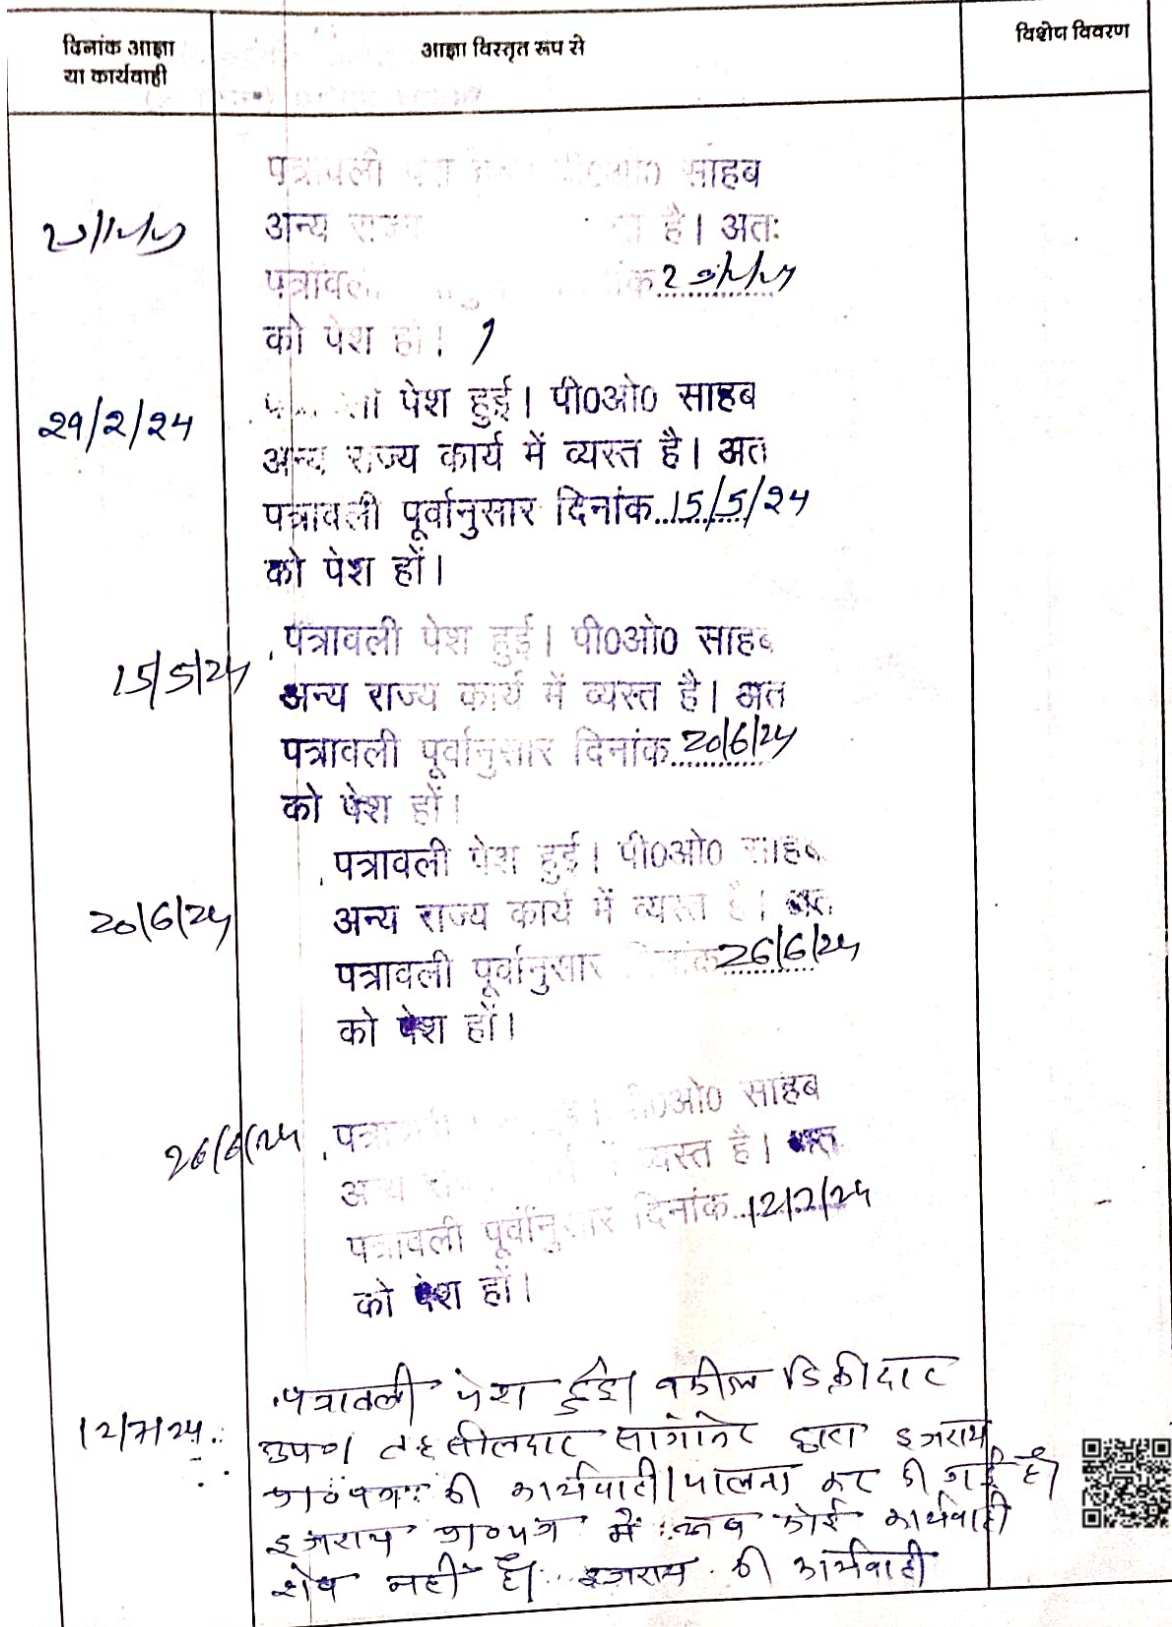 दिनांक आज्ञा
या कार्यवाही
आज्ञा विस्तृत रूप से
विशेष विवरण
पत्रावली पी0ओ0 साहब
अन्य राज्य है। अतः
पत्रावली
को पेश हों।
29/2/24
पेश हुई। पी0ओ0 साहब
अन्य राज्य कार्य में व्यस्त है। अत
पत्रावली पूर्वानुसार दिनांक 15/5/24
को पेश हों।
15/5/24
पत्रावली पेश हुई। पी0ओ0 साहब
अन्य राज्य कार्य में व्यस्त है। अत
पत्रावली पूर्वानुसार दिनांक 20/6/24
को पेश हों।
20/6/24
पत्रावली पेश हुई। पी0ओ0 साहब
अन्य राज्य कार्य में व्यस्त है। अत
पत्रावली पूर्वानुसार दिनांक 26/6/24
को पेश हों।
26/6/24
पी0ओ0 साहब
अन्य व्यस्त है। अत
पत्रावली पूर्वानुसार दिनांक
को पेश हों।
12/7/24
पत्रावली पेश हुई। वकील डिक्रीदार
उप0। तहसीलदार सांगानेर द्वारा इजराय
की कार्यवाही पालना कर दी गई है।
इजराय में अब कोई कार्यवाही
शेष नहीं है। इजराय की कार्यवाही